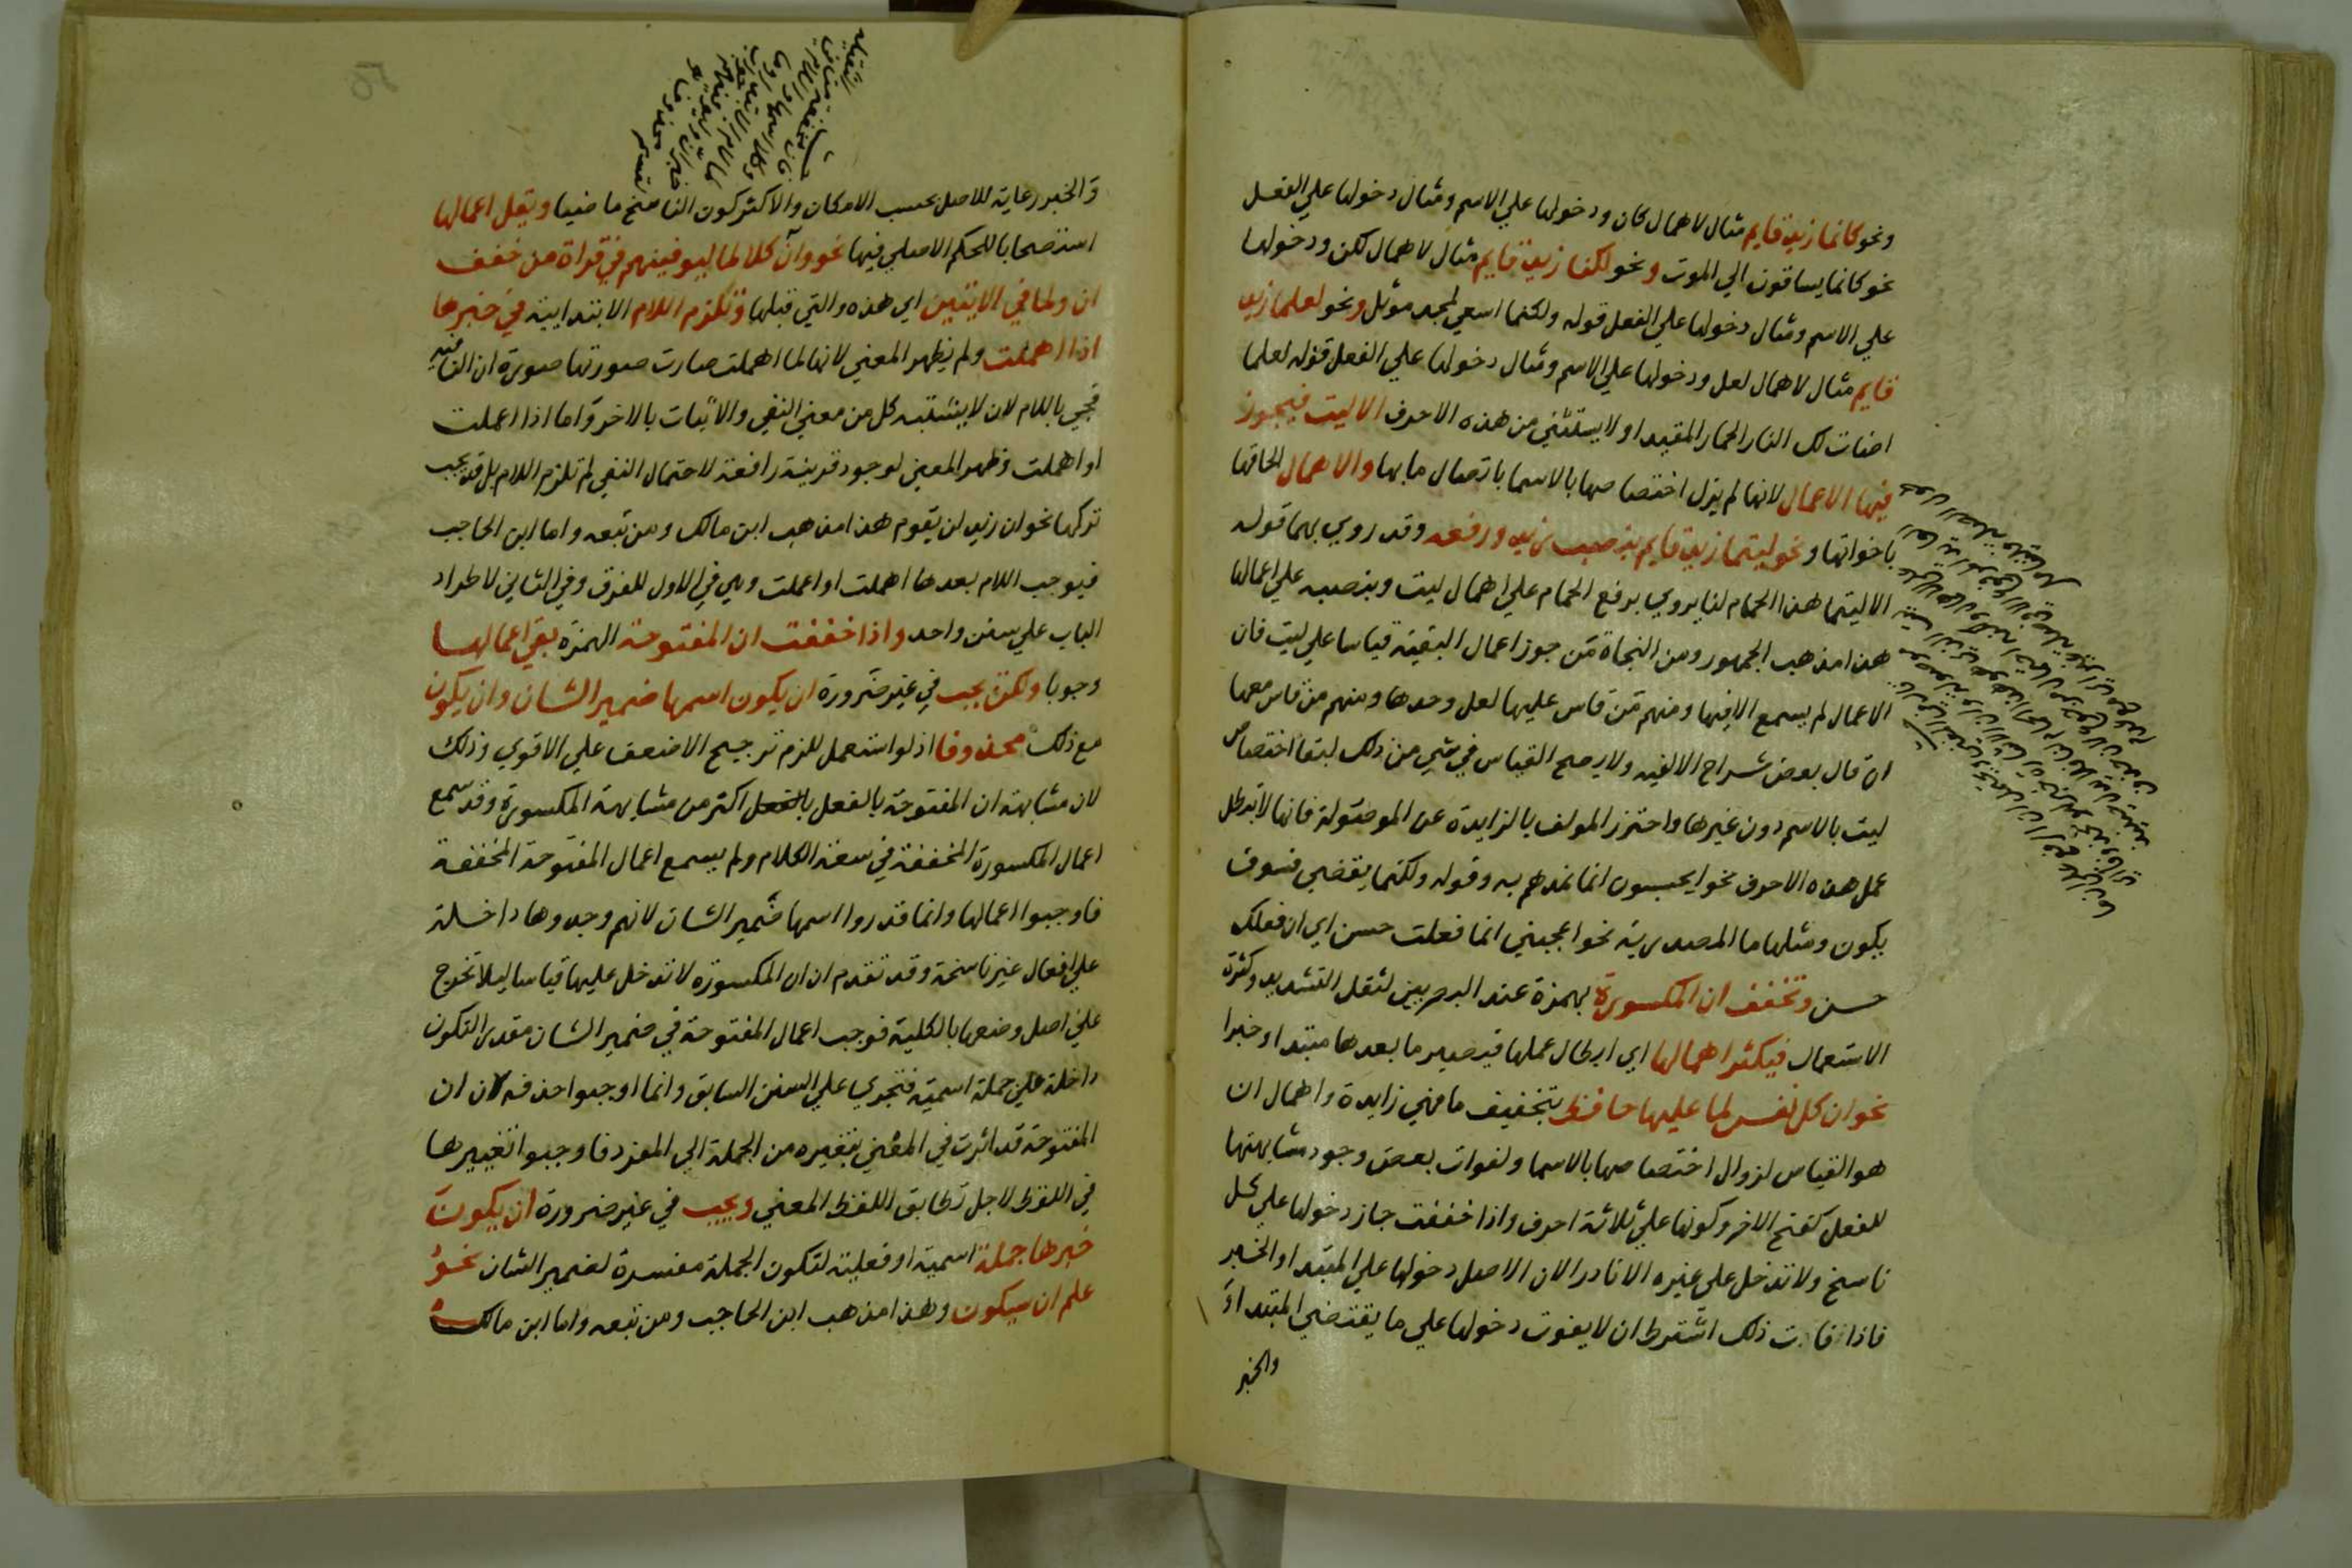 ونحو كانما زيد قايم مثال لاهمال كان ودخولها علي الاسم ومثال دخولها علي الفعل
نحو كانما يساقون الي الموت ونحو لكنما زيد قايم مثال لاهمال لكن ودخولها
علي الاسم ومثال دخولها علي الفعل قوله ولكنما اسعي لمجد موثل ونحو لعلما زيد
قايم مثال لاهمال لعل ودخولها علي الاسم ومثال دخولها علي الفعل قوله لعلما
اضات لك النار الحمار المقيدا ولا يستثني من هذه الاحرف الا ليت فيجوز
فيها الاعمال لانها لم يزل اختصاصها بالاسما باتصال ما بها والاهمال الحاقا
باخواتها ونحو ليتما زيد قايم بنصب زيد ورفعه وقد روي بهما قوله
الا ليتما هذا الحمام لنا يروي برفع الحمام علي اهمال ليت وبنصبه علي اعمالها
هذا مذهب الجمهور ومن النحاة من جوز اعمال البقية قياسا علي ليت فان
الاعمال لم يسمع الا فيها ومنهم من قاس عليها لعل وحدها ومنهم من قاس معها
ان قال بعض شراح الالفيه ولا يصح القياس في شي من ذلك لبقا اختصاص
ليت بالاسم دون غيرها واحترز المولف بالزايدة عن الموصولة فانها لا تبطل
عمل هذه الاحرف نحو ايحسبون انما نمدهم به وقوله ولكنما يقضي فسوف
يكون ومثلها ما المصدرية نحو اعجبني انما فعلت حسن اي ان فعلك
حسن وتخفف ان المكسورة بهمزة عند البصريين لثقل التشديد وكثرة
الاستعمال فيكثر اهمالها اي ابطال عملها فيصير ما بعدها مبتدا وخبرا
نحو ان كل نفس لما عليها حافظ بتخفيف ما فهي زايدة واهمال ان
هو القياس لزوال اختصاصها بالاسما ولفوات بعض وجود مشابهتها
للفعل كفتح الاخر وكونها علي ثلاثة احرف واذا خففت جاز دخولها علي كل
ناسخ ولا تدخل علي غيره الا نادرا لان الاصل دخولها علي المبتدا والخبر
فاذا فات ذلك اشترط ان لا يفوت دخولها علي ما يقتضي المبتدا و
والخبر
و الخبر رعاية للاصل بحسب الامكان والاكثر كون الناسخ ماضيا ويقل اعمالها
استصحابا للحكم الاصلي فيها نحو وان كلا لما ليوفينهم في قراة من خفف
ان ولما في الايتين اي هذه والتي قبلها وتلزم اللام الابتدايية في خبرها
اذا اهملت ولم يظهر المعني لانها لما اهملت صارت صورتها صورة ان النافيه
فجي باللام لان لا يشتبه كل من معني النفي والاثبات بالاخر واما اذا اعملت
او اهملت وظهر المعني لوجود قرينة رافعة لاحتمال النفي لم تلزم اللام بل قد يجب
تركها نحو ان زيد لن يقوم هذا مذهب ابن مالك ومن تبعه واما ابن الحاجب
فيوجب اللام بعدها اهملت او اعملت وهي في الاول للفرق وفي الثاني لاطراد
الباب علي سنن واحد واذا خففت ان المفتوحة الهمزة بقي اعمالها
وجوبا ولكن يجب في غير ضرورة ان يكون اسمها ضمير الشان وان يكون
مع ذلك محذوفا اذ لو استعمل للزم ترجيح الاضعف علي الاقوي وذلك
لان مشابهة ان المفتوحة بالفعل بالفعل اكثر من مشابهة المكسورة وقد سمع
اعمال المكسورة المخففة في سعة الكلام ولم يسمع اعمال المفتوحة المخففة
فاوجبوا اعمالها وانما قدروا اسمها ضمير الشان لانهم وجدوها داخلة
علي افعال غير ناسخة وقد تقدم ان ان المكسورة لا تدخل عليها قياسا ليلا تخرج
علي اصل وضعها بالكلية فوجب اعمال المفتوحة في ضمير الشان مقدر التكون
داخلة علي جملة اسمية فتجري علي السنن السابق وانما اوجبوا حذفه لان ان
المفتوحة قد اثرت في المعني بتغيره من الجملة الي المفرد فاوجبوا تغييرها
في اللفظ لاجل تطابق اللفظ المعني ويجب في غير ضرورة ان يكون
خبرها جملة اسمية او فعلية لتكون الجملة مفسرة لضمير الشان نحو
علم ان سيكون وهذا مذهب ابن الحاجب ومن تبعه واما ابن مالك